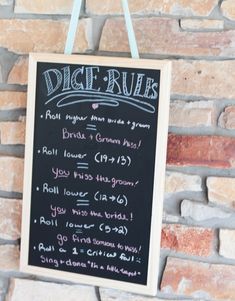 DICE RULES
• Roll higher than bride + groom
=
Bride + Groom kiss!
• Roll lower (19→13)
=
You kiss the groom!
• Roll lower (12→6)
=
you kiss the bride!
• Roll lower (5→2)
=
go find someone to kiss!
• Roll a 1 = Critical fail =
Sing + dance "I'm a little teapot"